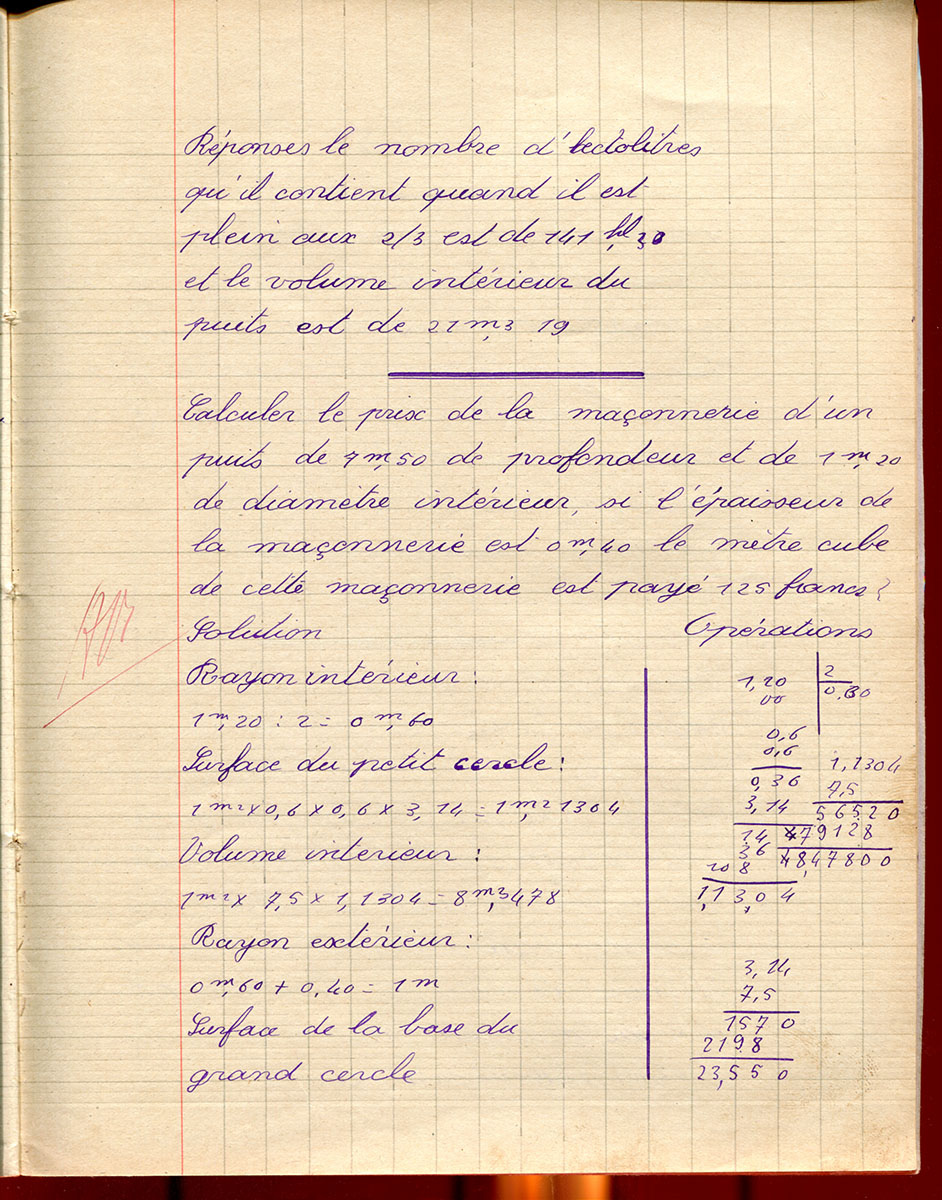 Réponses le nombre d'hectolitres
qu'il contient quand il est
plein aux 2/3 est de 141 hl,30
et le volume intérieur du
puits est de 21 m,3 19
Calculer le prix de la maçonnerie d'un
puits de 7 m,50 de profondeur et de 1 m,20
de diamètre intérieur, si l'épaisseur de
la maçonnerie est 0 m,40 le mètre cube
de cette maçonnerie est payé 125 francs?
Solution
Rayon intérieur :
1 m,20 : 2 = 0 m,60
Surface du petit cercle :
1 m2 x 0,6 x 0,6 x 3,14 = 1 m,2 1304
Volume interieur :
1 m2 x 7,5 x 1,1304 = 8 m,3 478
Rayon extérieur :
0 m,60 + 0,40 = 1 m
Surface de la base du
grand cercle
Opérations
1,20 2
00 0,60
0,6
0,6
0,36
3,14
14 4
36
10 8
1,1 3 0 4
1,1304
7,5
56520
79128
8,47800
3,14
7,5
1570
2198
23,550